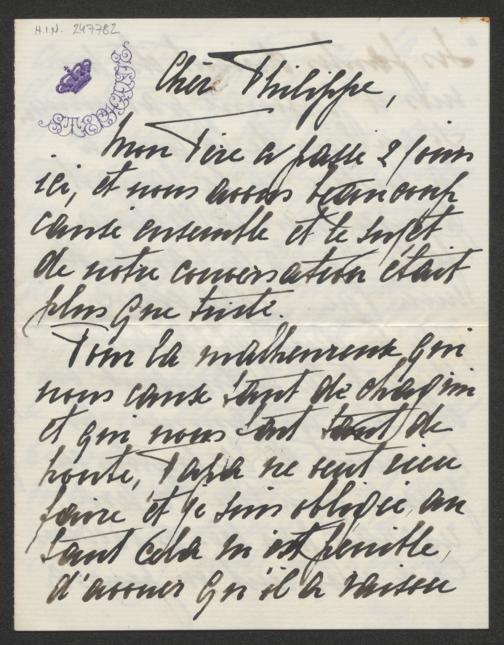 H.I.N. 247782
Cher Philippe,
Mon Père a passé 2 jours
ici, et nous avons beaucoup
causé ensemble et le sujet
de notre conversation était
plus que triste.
Pour la malheureuse qui
nous cause tant de chagrin
et qui nous fait tant de
honte, Papa ne veut rien
faire et je suis obligée,
tant cela m'est pénible,
d'avouer qu'il a raison